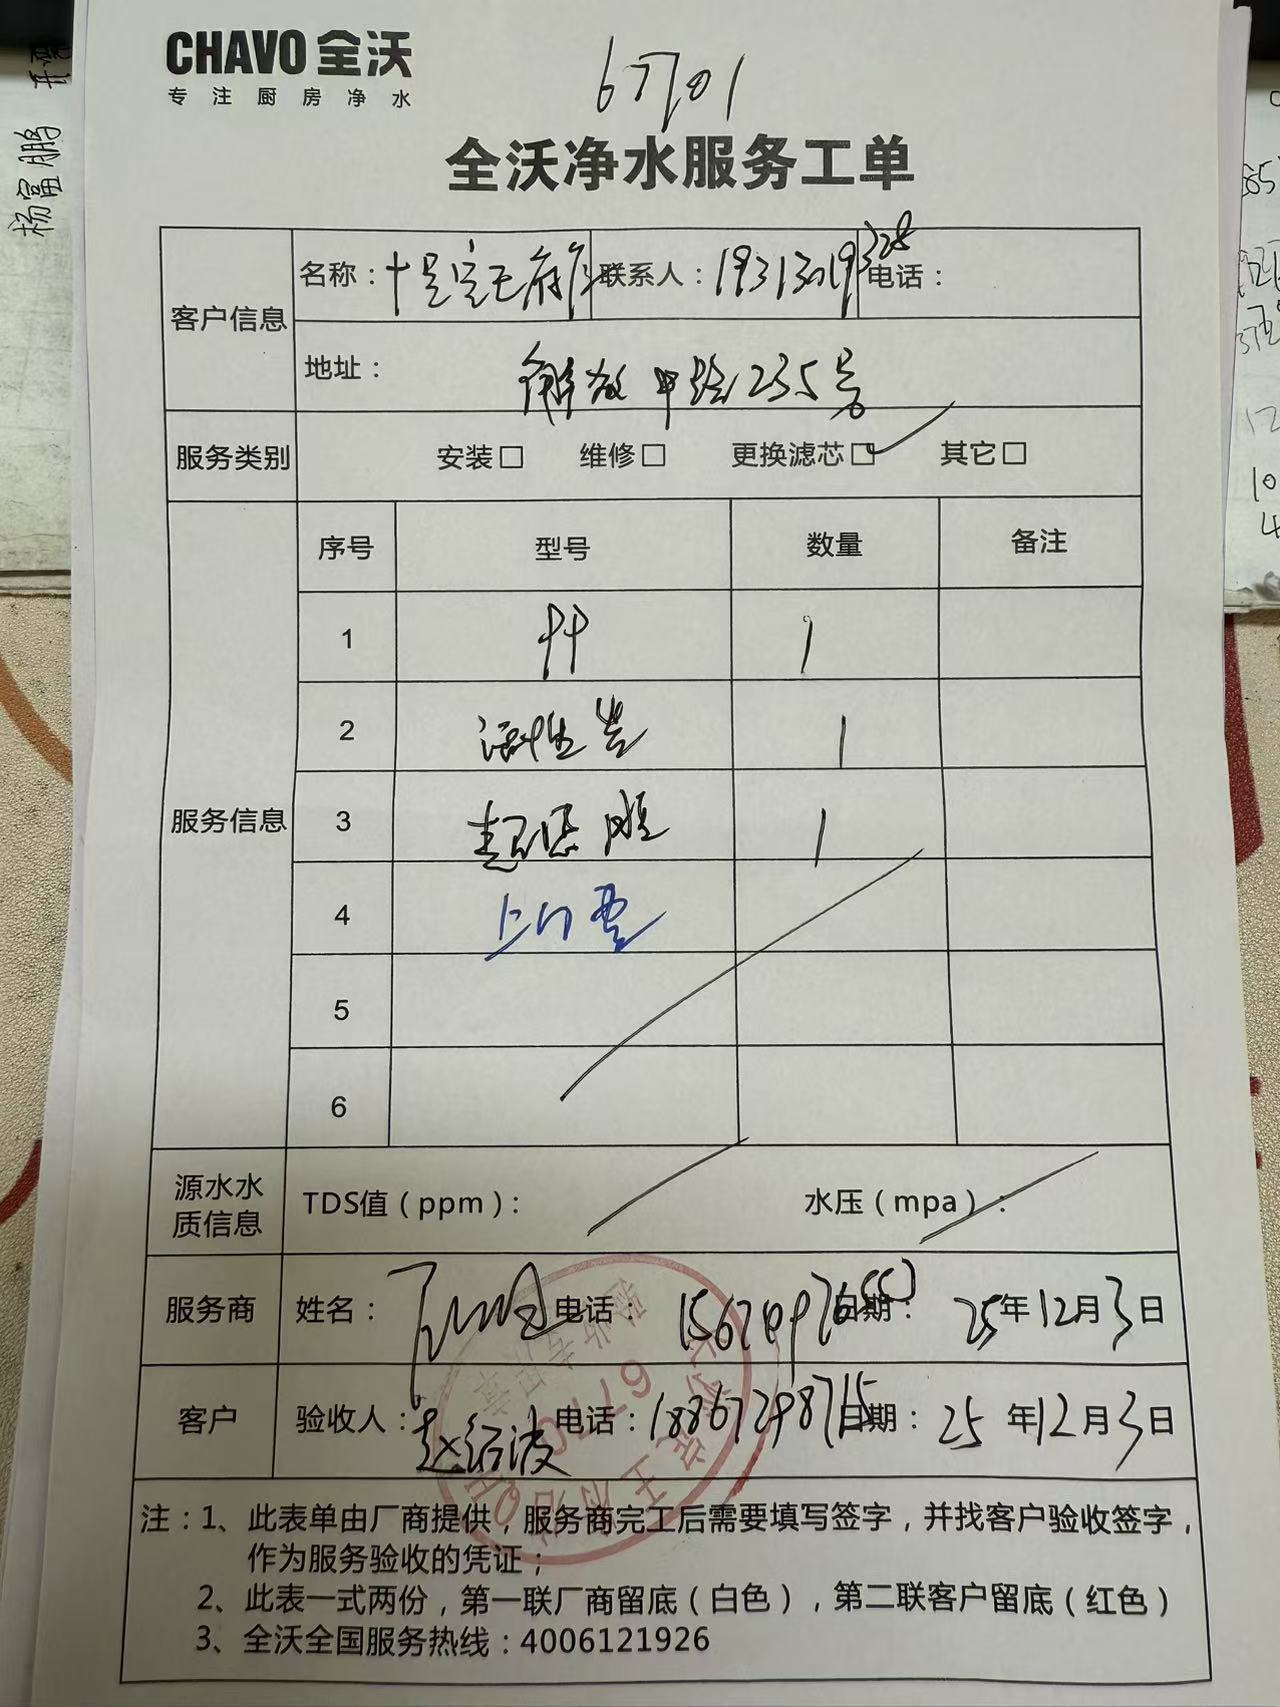 CHAVO 全沃
专注厨房净水
67701
全沃净水服务工单
杨富鹏
客户信息
名称：十足定王府店 联系人：19313019328 电话：
地址：解放中路235号
服务类别 安装□ 维修□ 更换滤芯□✓ 其它□
服务信息
序号 型号 数量 备注
1 PP 1
2 活性炭 1
3 超滤膜 1
4 上门费
5
6
源水水质信息 TDS值（ppm）： 水压（mpa）：
服务商 姓名： 电话： 日期：25年12月3日
客户 验收人：赵绍波 电话：18867298715 日期：25年12月3日
注：1、此表单由厂商提供，服务商完工后需要填写签字，并找客户验收签字，
作为服务验收的凭证；
2、此表一式两份，第一联厂商留底（白色），第二联客户留底（红色）
3、全沃全国服务热线：4006121926